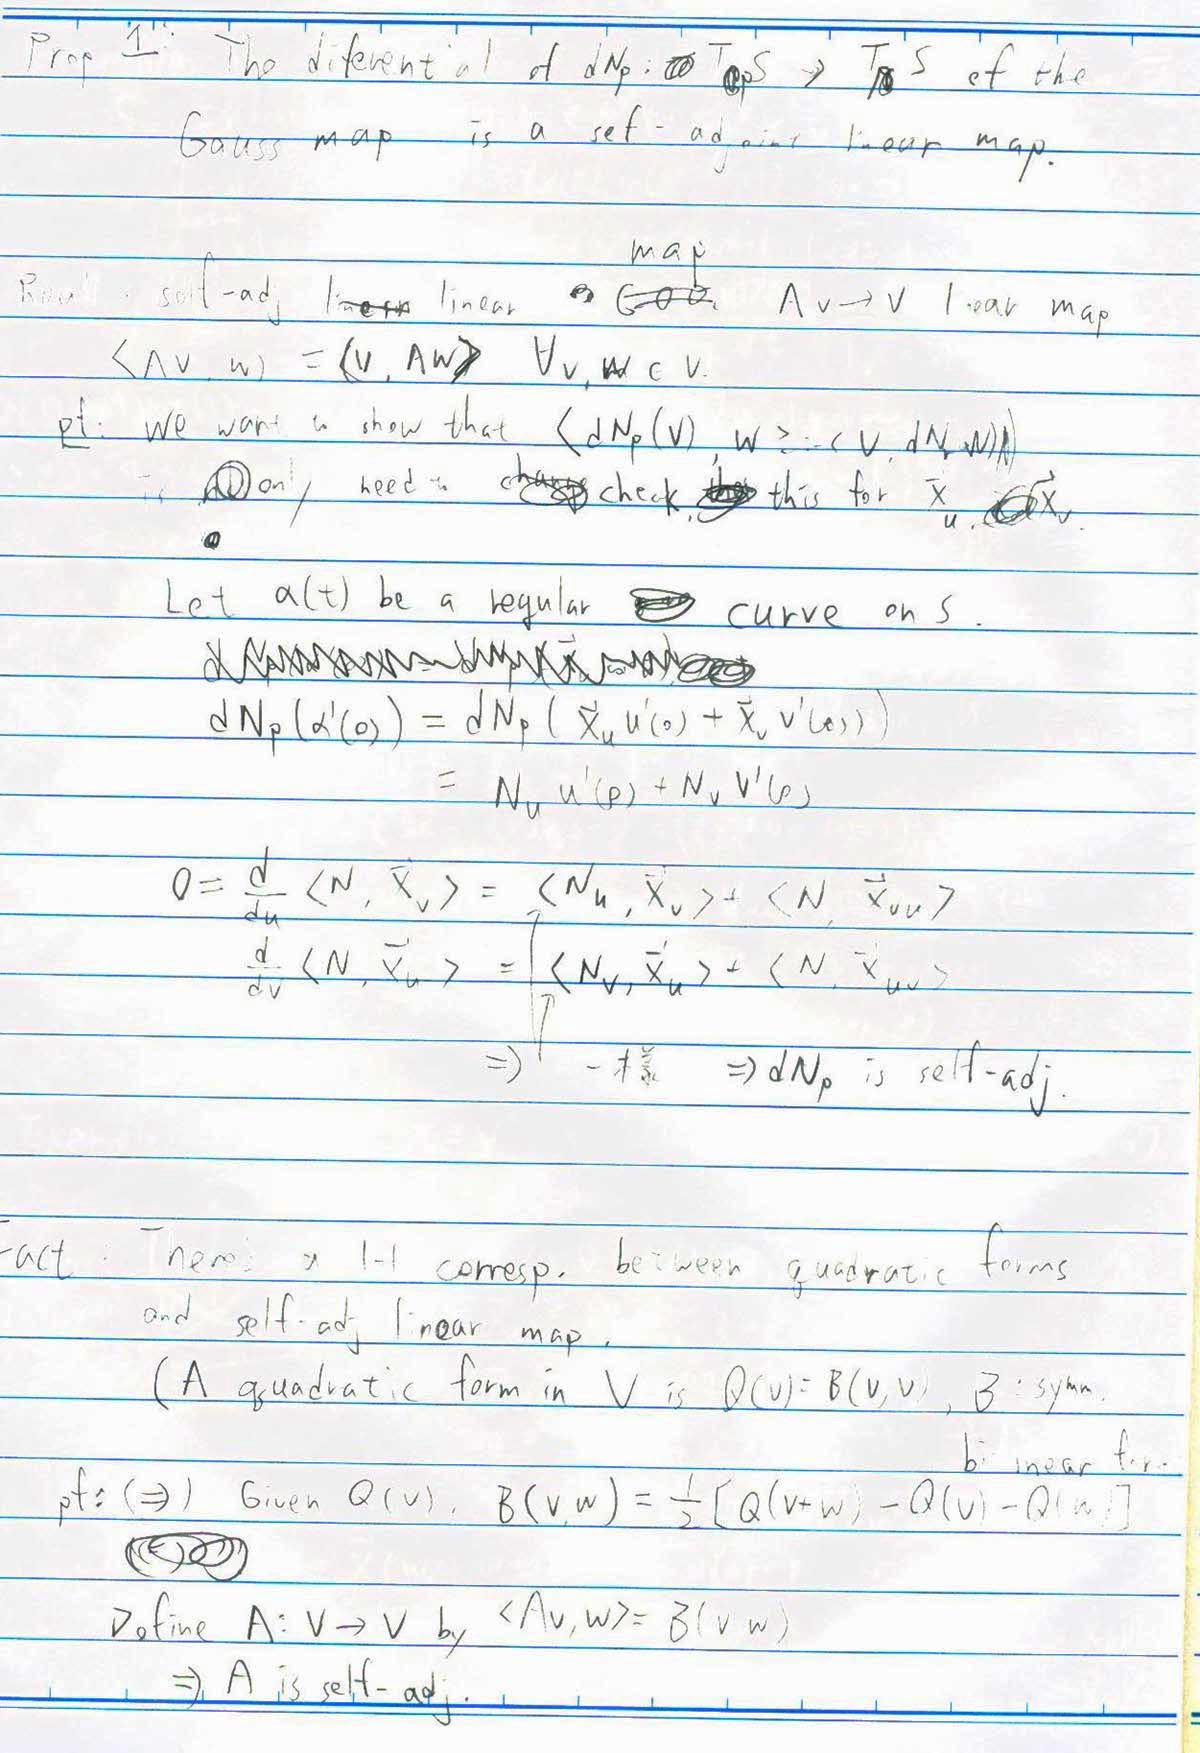 Prop 1: The diferential of dNp: TpS → TpS of the
Gauss map is a sef-adjoint linear map.
map
Recall: self-adj linear linear A V→V linear map
<AV, W> = <V, AW> ∀v, w ∈ V.
pf: We want to show that <dNp(V), W> = <V, dNp(W)>
only need to check this for x⃗u, x⃗v.
Let α(t) be a regular curve on S.
dNp(α'(0)) = dNp(x⃗u u'(0) + x⃗v v'(0))
= Nu u'(0) + Nv v'(0)
0 = d/du <N, x⃗v> = <Nu, x⃗v> + <N, x⃗vu>
d/dv <N, x⃗u> = <Nv, x⃗u> + <N, x⃗uv>
⇒ ⇒ dNp is self-adj.
Fact: There's a 1-1 corresp. between quadratic forms
and self-adj linear map.
(A quadratic form in V is Q(v) = B(v,v), B: symm.
bilinear form
pf: (⇒) Given Q(v), B(v,w) = 1/2 [Q(v+w) - Q(v) - Q(w)]
Define A: V → V by <Av, w> = B(v w)
⇒ A is self-adj.